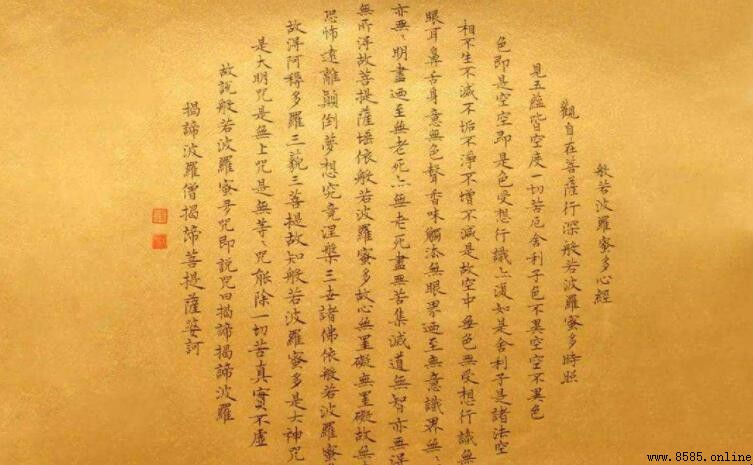 般若波羅蜜多心經
觀自在菩薩行深般若波羅蜜多時照
見五蘊皆空度一切苦厄舍利子色不異空空不異色
色即是空空即是色受想行識亦復如是舍利子是諸法空
相不生不滅不垢不淨不增不減是故空中無色無受想行識無
眼耳鼻舌身意無色聲香味觸法無眼界迺至無意識界無〻
亦無〻明盡迺至無老死亦無老死盡無苦集滅道無智亦無得
無所得故菩提薩埵依般若波羅蜜多故心無罣礙無罣礙故無
恐怖遠離顛倒夢想究竟涅槃三世諸佛依般若波羅蜜
故得阿耨多羅三藐三菩提故知般若波羅蜜多是大神咒
是大明咒是無上咒是無等〻咒能除一切苦真實不虛
故說般若波羅蜜多咒即說咒曰揭諦揭諦波羅
揭諦波羅僧揭諦菩提薩婆訶
www.8585.online